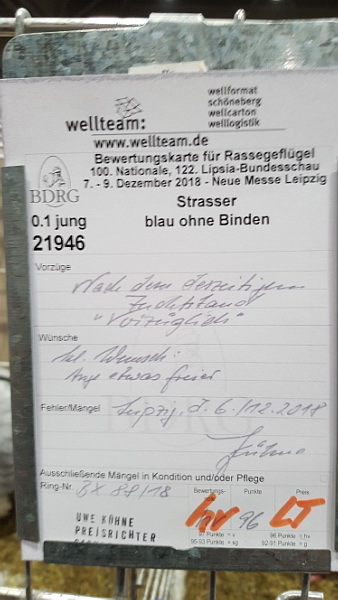 wellteam:
wellformat
schöneberg
wellcarton
welllogistik
www.wellteam.de
Bewertungskarte für Rassegeflügel
100. Nationale, 122. Lipsia-Bundesschau
7. - 9. Dezember 2018 - Neue Messe Leipzig
BDRG
Strasser
0.1 jung
blau ohne Binden
21946
Vorzüge
Nach dem derzeitigen
Zuchtstand
"Vorzüglich"
Wünsche
kl. Wunsch:
Auge etwas freier
Fehler/Mängel
Leipzig, d. 6./12.2018
Kühne
Ausschließende Mängel in Kondition und/oder Pflege
Ring-Nr.
BX 88/18
Bewertungs-
Punkte
Preis
hv
96
LT
UWE KÜHNE
PREISRICHTER
97 Punkte = v
96 Punkte = hv
93-95 Punkte = sg